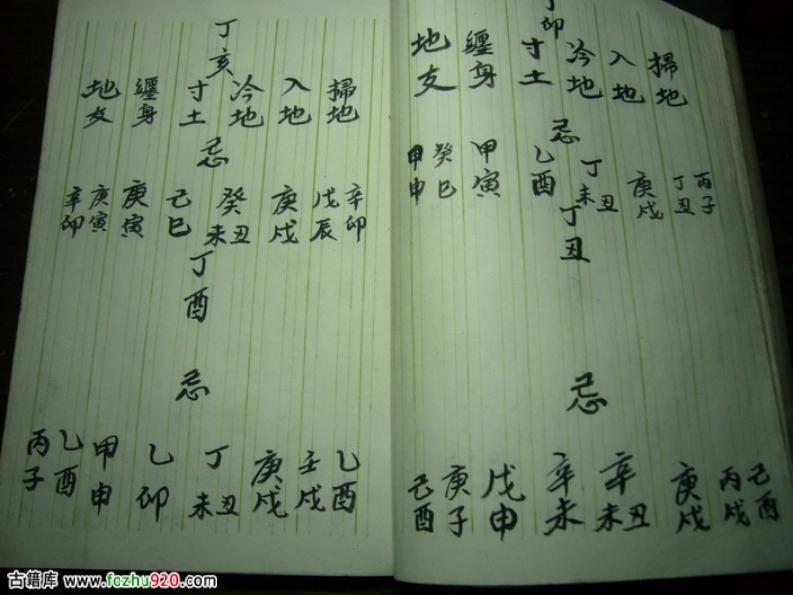 丁卯
掃地 入地 冷地 寸土 纏身 地支
忌
丙子 丁丑 庚戌 丁未丑 乙酉 甲寅 癸巳 甲申
丁丑
忌
己酉 丙戌 庚戌 辛未丑 辛未 戊申 庚子 己酉
丁亥
掃地 入地 冷地 寸土 纏身 地支
忌
辛卯 戊辰 庚戌 癸未丑 己巳 庚寅 庚寅 辛卯
丁酉
忌
乙酉 壬戌 庚戌 丁未丑 乙卯 甲申 乙酉 丙子
古籍库 www.fozhu920.com